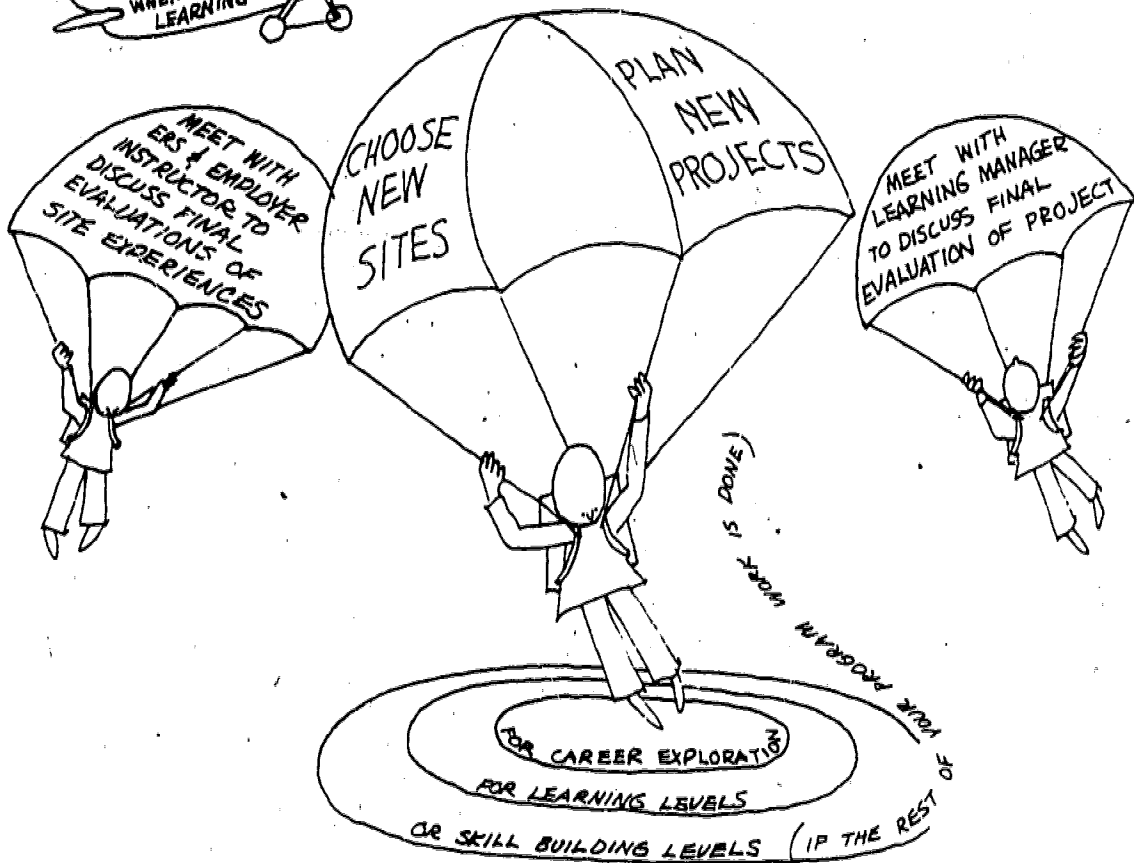 LEARNING
MEET WITH
ERS & EMPLOYER
INSTRUCTOR TO
DISCUSS FINAL
EVALUATIONS OF
SITE EXPERIENCES
CHOOSE
NEW
SITES
PLAN
NEW
PROJECTS
MEET WITH
LEARNING MANAGER
TO DISCUSS FINAL
EVALUATION OF PROJECT
FOR CAREER EXPLORATION
FOR LEARNING LEVELS
OR SKILL BUILDING LEVELS (IF THE REST OF YOUR PROGRAM WORK IS DONE)